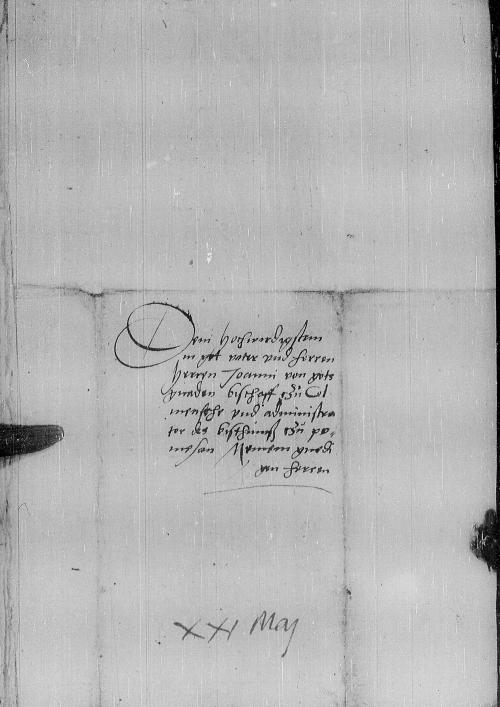 Dem hochwirdigstem
in got vater und herren
herren Joanni von gots
gnaden bischoff czu Col
mensehe vnd administra
tor des bisthumß czu po-
mesan Meinem gnedi
gen herren
XXI Maij